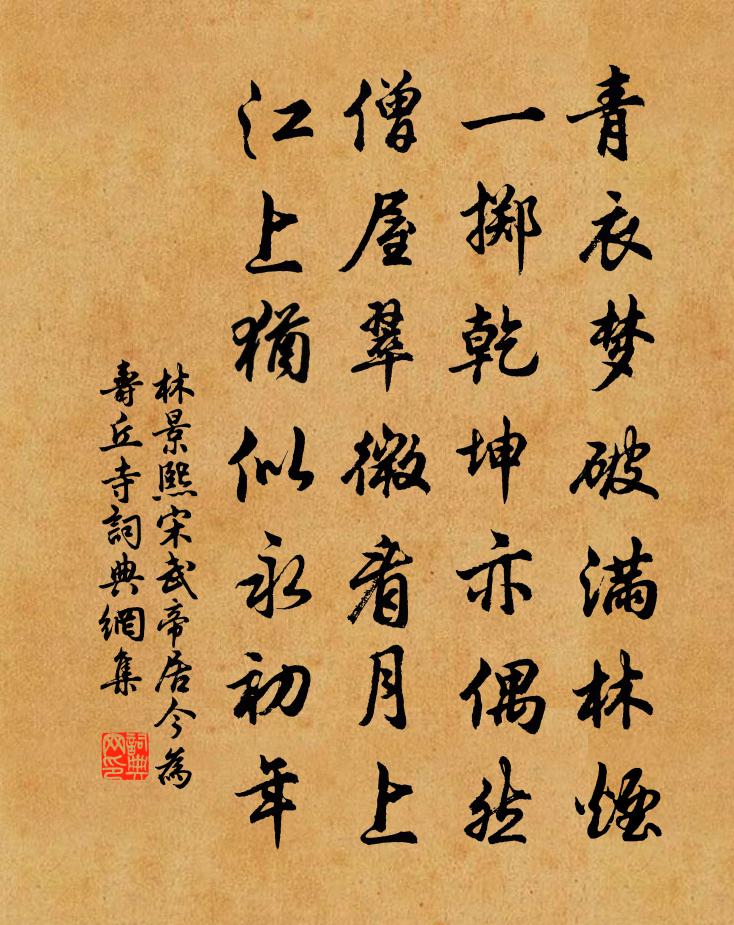 青衣梦破满林烟
一掷乾坤亦偶然
僧屋翠微看月上
江上犹似永初年
林景熙宋武帝居今為
壽丘寺詞典網集
詞典网印